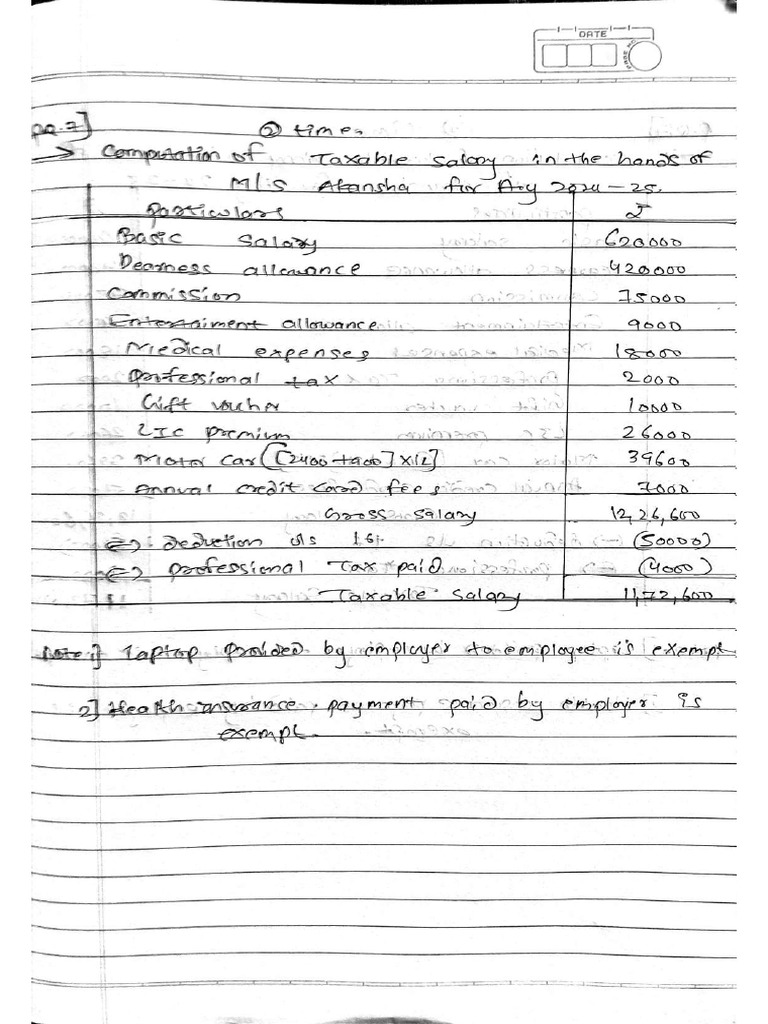 DATE
PAGE NO
pq.7]
② times
→ Computation of Taxable salary in the hands of
M/s Akansha for A.y 2024-25.
particulars ₹
Basic salary 620000
Dearness allowance 420000
Commission 75000
Entertainment allowance 9000
Medical expenses 18000
professional tax 2000
Gift voucher 10000
LIC premium 26000
Motor car ([2400+900]x12] 39600
Annual credit card fees 7000
Gross salary 12,26,600
(-) Deduction u/s 16: (50000)
(-) professional Tax paid (4000)
Taxable salary 11,72,600
Note:1] Laptop provided by employer to employee is exempt
2] Health insurance payment paid by employer is
exempt.